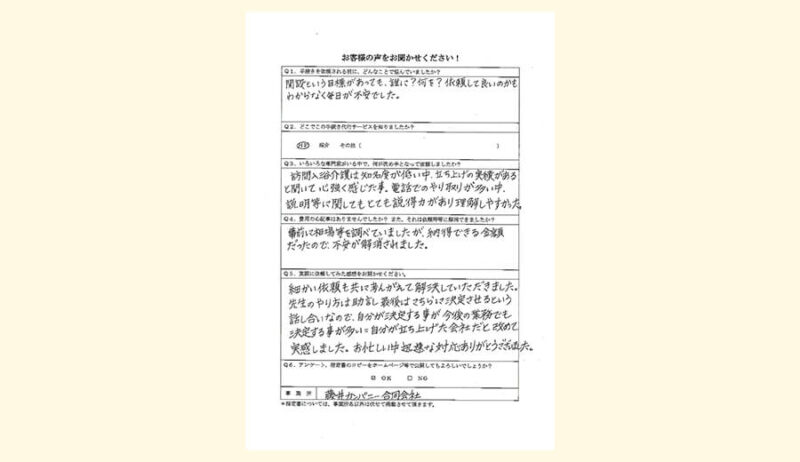 お客様の声をお聞かせください！
Q1. 手続きを依頼される前に、どんなことで悩んでいましたか？
開設という目標があっても、誰に？何を？依頼して良いのかも
わからなく毎日が不安でした。
Q2. どこでこの手続き代行サービスを知りましたか？
紹介 その他（ ）
Q3. いろいろな専門家がいる中で、何が決め手となって依頼しましたか？
訪問入浴介護は知名度が低い中、立ち上げの実績がある
と聞いて心強く感じた事。電話でのやり取りが多い中、
説明等に関してもとても説得力があり理解しやすかった。
Q4. 費用の心配事はありませんでしたか？また、それは依頼時等に解消できましたか？
事前に相場等を調べていましたが、納得できる金額
だったので、不安が解消されました。
Q5. 実際に依頼してみた感想をお聞かせください。
細かい依頼も共にかんがえて解決していただきました。
先生のやり方は助言し最後はこちらに決定させるという
話し合いなので、自分が決定する事が今後の業務でも
決定する事が多い=自分が立ち上げた会社だと改めて
実感しました。お忙しい中迅速な対応ありがとうございました。
Q6. アンケート、指定書のコピーをホームページ等で公開してもよろしいでしょうか？
☑ OK □ NO
事業所 藤井カンパニー合同会社
*指定書については、事業所名以外は伏せて掲載させて頂きます。